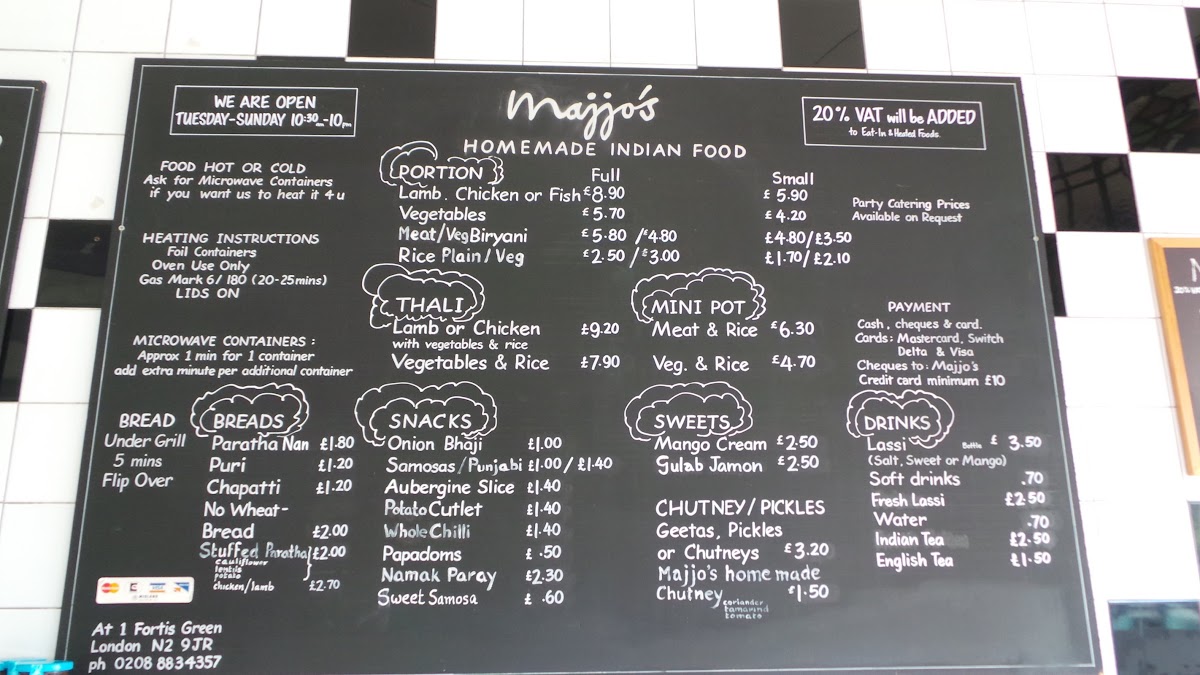 WE ARE OPEN
TUESDAY-SUNDAY 10:30am-10pm
Majjo's
HOMEMADE INDIAN FOOD
20% VAT will be ADDED
to Eat-In & Heated Foods.
FOOD HOT OR COLD
Ask for Microwave Containers
if you want us to heat it 4 u
HEATING INSTRUCTIONS
Foil Containers
Oven Use Only
Gas Mark 6/ 180 (20-25mins)
LIDS ON
MICROWAVE CONTAINERS :
Approx 1 min for 1 container
add extra minute per additional container
PORTION Full Small
Lamb. Chicken or Fish £8.90 £ 5.90
Vegetables £5.70 £4.20
Meat/Veg Biryani £5.80 /£4.80 £4.80/£3.50
Rice Plain/Veg £2.50 /£3.00 £1.70/£2.10
Party Catering Prices
Available on Request
THALI
Lamb or Chicken £9.20
with vegetables & rice
Vegetables & Rice £7.90
MINI POT
Meat & Rice £6.30
Veg. & Rice £4.70
PAYMENT
Cash, cheques & card.
Cards: Mastercard, Switch
Delta & Visa
Cheques to: Majjo's
Credit card minimum £10
BREAD
Under Grill
5 mins
Flip Over
BREADS
Paratha Nan £1.80
Puri £1.20
Chapatti £1.20
No Wheat-
Bread £2.00
Stuffed Paratha £2.00
cauliflower
lentils
potato
chicken/lamb £2.70
SNACKS
Onion Bhaji £1.00
Samosas/Punjabi £1.00/£1.40
Aubergine Slice £1.40
Potato Cutlet £1.40
Whole Chilli £1.40
Papadoms £ .50
Namak Paray £2.30
Sweet Samosa £ .60
SWEETS
Mango Cream £2.50
Gulab Jamon £2.50
CHUTNEY/PICKLES
Geetas, Pickles
or Chutneys £3.20
Majjo's home made
Chutney £1.50
coriander
tamarind
tomato
DRINKS
Lassi Bottle £ 3.50
(Salt, Sweet or Mango)
Soft drinks .70
Fresh Lassi £2.50
Water .70
Indian Tea £2.50
English Tea £1.50
At 1 Fortis Green
London N2 9JR
ph 0208 8834357